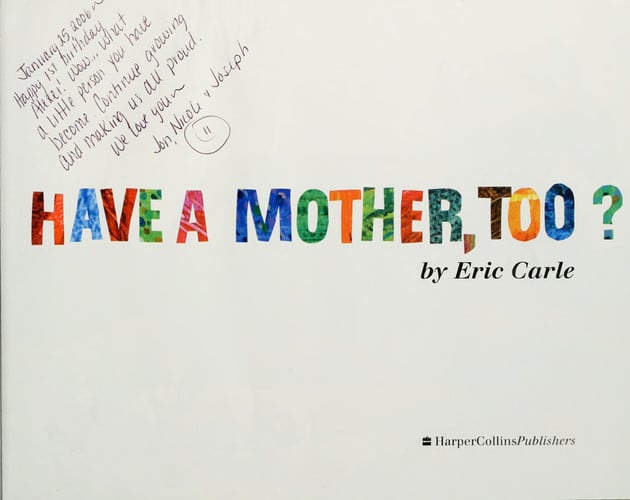 January 25 2006
Happy 1st birthday
Alexei! Wow... what
a little person you have
become. Continue growing
and making us all proud.
We love you
Jon, Nicole & Joseph
HAVE A MOTHER, TOO?
by Eric Carle
HarperCollinsPublishers